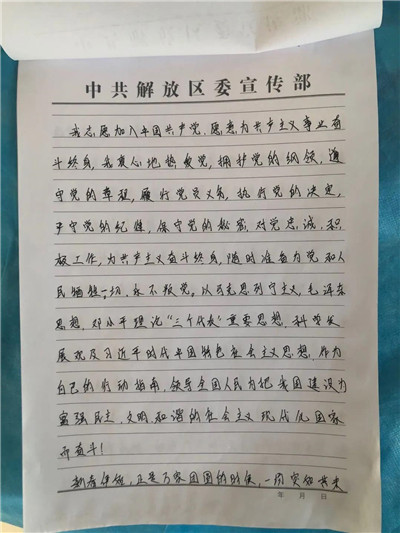 中共解放区委宣传部
我志愿加入中国共产党,愿意为共产主义事业奋
斗终身,我衷心地热爱党,拥护党的纲领,遵
守党的章程,履行党员义务,执行党的决定,
严守党的纪律,保守党的秘密,对党忠诚,积
极工作,为共产主义奋斗终身,随时准备为党和人
民牺牲一切,永不叛党。以马克思列宁主义,毛泽东
思想,邓小平理论"三个代表"重要思想,科学发
展观及习近平时代中国特色社会主义思想,作为
自己的行动指南,领导全国人民为把我国建设为
富强民主,文明和谐的社会主义现代化国家
而奋斗!
新春伊始,正是万家团圆的时候,一场突如其来
年 月 日